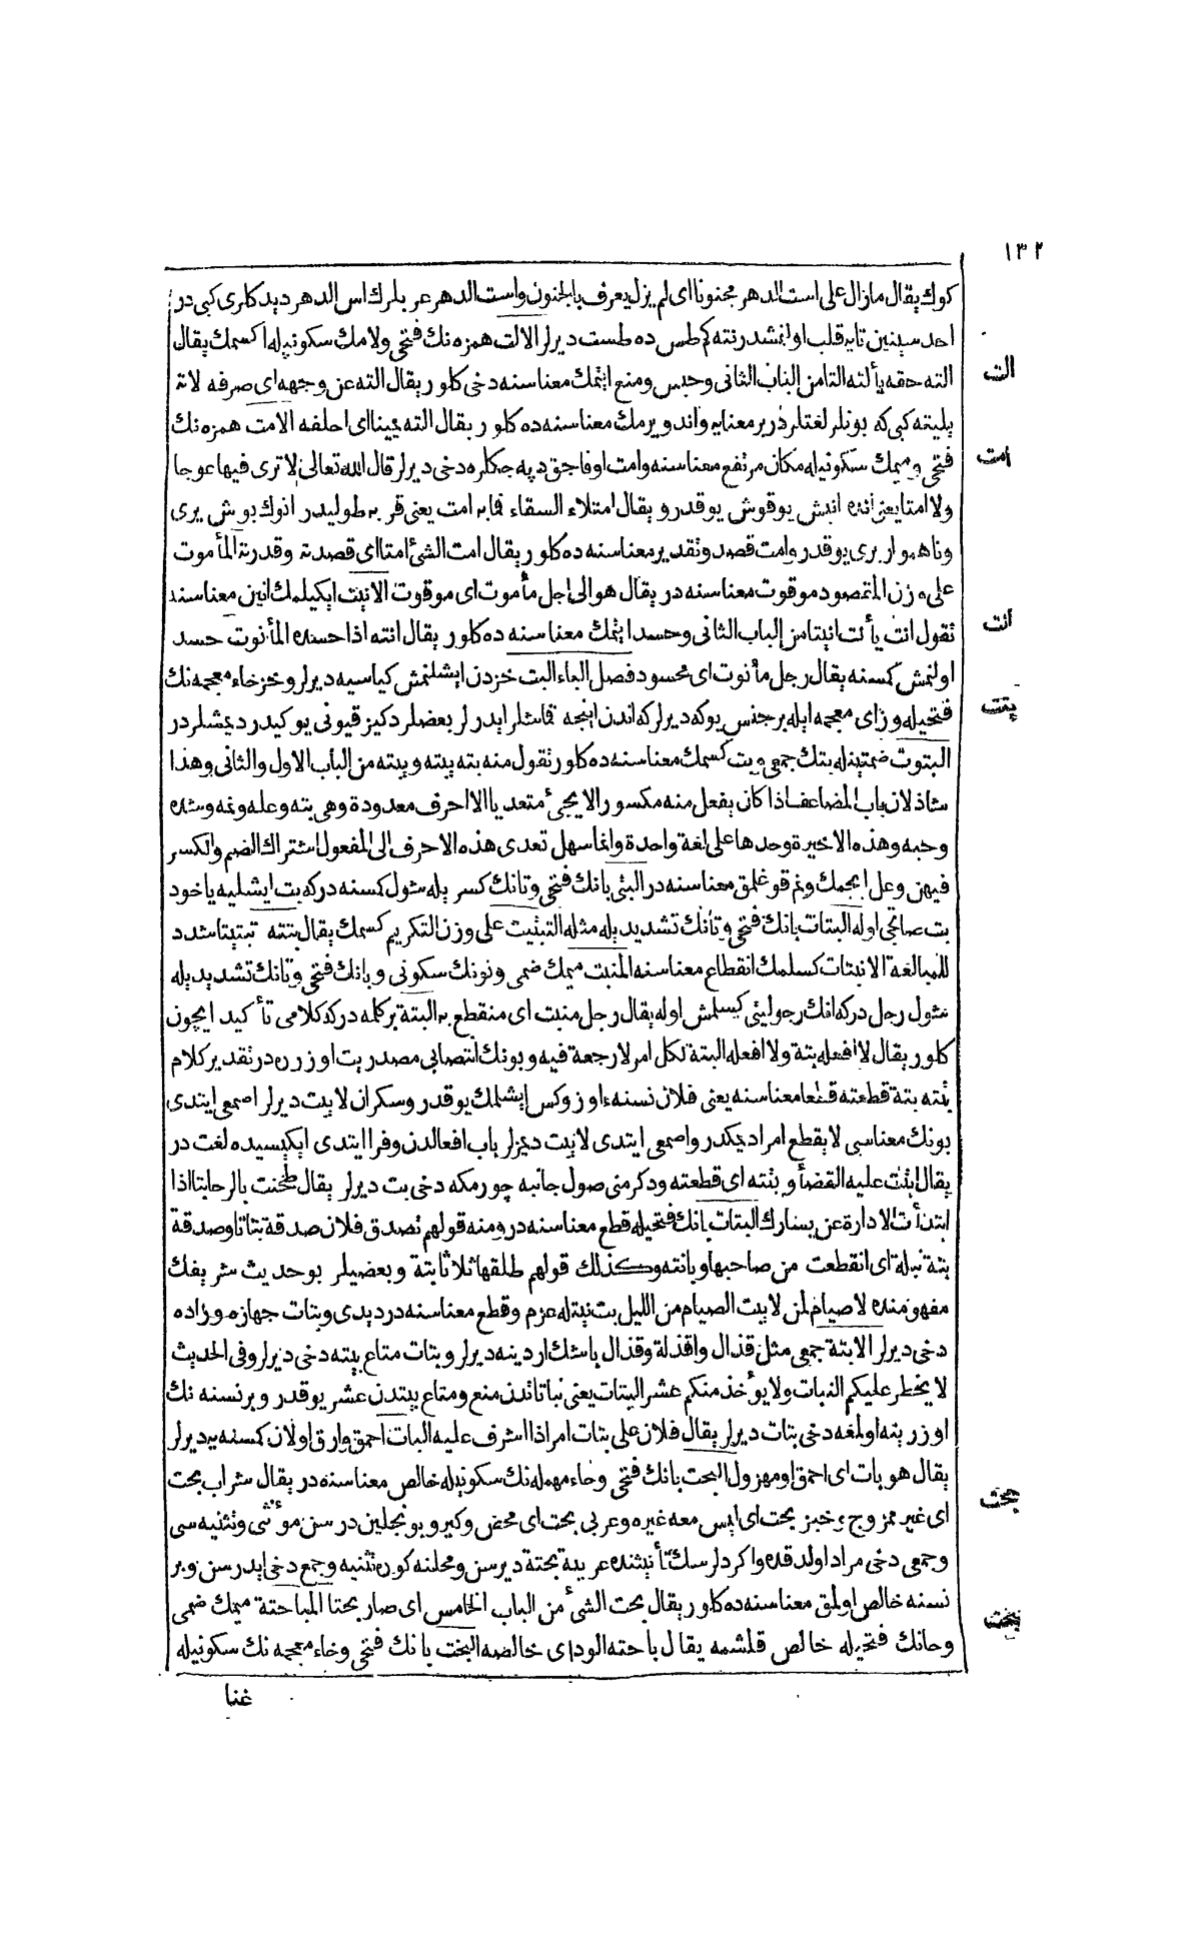 ١٣٢
كوك يقال مازال على است الدهر مجنونا اى لم يزل يعرف بالجنون واست الدهر عربلرك اس الدهر ديدكلرى كبى در
احد سينين تايه قلب اولنمشدر نته كم طس ده طست ديرلر الالت همزه نك فتحى ولامك سكونيله اكسمك يقال
الت
الته حقه يألته التا من الباب الثانى وحبس ومنع ايتمك معناسنه دخى كلور يقال الته عن وجهه اى صرفه لاته
يليته كبى كه بونلر لغتلردر بر معنايه واند ويرمك معناسنه ده كلور يقال الته يمينا اى احلفه الامت همزه نك
امت
فتحى وميمك سكونيله مكان مرتفع معناسنه وامت اوفاجق دپه جكلره دخى ديرلر قال الله تعالى لا ترى فيها عوجا
ولا امتا يعنى انده انيش يوقوش يوقدر و يقال امتلاء السقاء فما به امت يعنى قربه طوليدر انوك بوش يرى
وناهموار يرى يوقدر وامت قصد وتقدير معناسنه ده كلور يقال امت الشئ امتا اى قصدته وقدرته المأموت
على وزن المقصود موقوت معناسنه در يقال هو الى اجل مأموت اى موقوت الانيت ايكيلمك انين معناسنه
انت
تقول انت يأنت انيتا من الباب الثانى وحسد ايتمك معناسنه ده كلور يقال انته اذا حسده المأنوت حسد
اولنمش كمسنه يقال رجل مأنوت اى محسود فصل الباء البت خزدن ايشلنمش كپاسيه ديرلر وخز خاء معجمه نك
بتت
فتحيله وزاى معجمه ايله برجنس يوكه ديرلر كه اندن اينجه قماشلر ايدرلر بعضلر دكيز قيونى يوكيدر ديمشلردر
البتوت ضمتينله بتك جمعى وبت كسمك معناسنه ده كلور تقول منه بته يبته ويبته من الباب الاول والثانى وهذا
شاذ لان باب المضاعف اذا كان يفعل منه مكسورا لا يجئ متعديا الا احرف معدودة وهى بته وعله ونمه وشده
وحبه وهذه الاخيرة وحدها على لغة واحدة وانما سهل تعدى هذه الاحرف الى المفعول اشتراك الضم والكسر
فيهن وعل ايچمك ونم قوغلمق معناسنه در البتى بانك فتحى وتانك كسر يله شول كمسنه در كه بت ايشليه ياخود
بت صاتجى اوله البتات بانك فتحى وتأنك تشديد يله مثله التبتيت على وزن التكريم كسمك يقال بتته تبتيتا شدد
للمبالغة الانبتات كسلمك انقطاع معناسنه المنبت ميمك ضمى ونونك سكونى وبانك فتحى وتانك تشديد يله
شول رجل در كه انك رجوليتى كيسلمش اوله يقال رجل منبت اى منقطع به البتة بركلمه در كه كلامى تأكيد ايچون
كلور يقال لا افعله بتة ولا افعله البتة لكل امر لا رجعة فيه وبونك انتصابى مصدريت اوزره در تقدير كلام
بتته بتة قطعته قطعا معناسنه يعنى فلان نسنه اوزوكس ايشلمك يوقدر وسكران لا يبت ديرلر اصمعى ايتدى
بونك معناسى لا يقطع امرا ديمكدر واصمعى ايتدى لا يبت ديمزلر باب افعالدن وفرا ايتدى ايكيسيده لغت در
يقال ابتت عليه القضأ و بتته اى قطعته ودكرمنى صول جانبه چورمكه دخى بت ديرلر يقال طحنت بالرحا بتا اذا
ابتدأت الادارة عن يسارك البتات بانك فتحيله قطع معناسنه در ومنه قولهم تصدق فلان صدقة بتاتا وصدقة
بتة بتلة اى انقطعت من صاحبها وبانته وكذلك قولهم طلقها ثلاثا بتة وبعضيلر بو حديث شريفك
مفهومنده لا صيام لمن لا يبت الصيام من الليل بت نيتله عزم وقطع معناسنه در ديدى وبتات جهازه وزاده
دخى ديرلر الابتة جمعى مثل قذال واقذلة وقذال باشك اردينه ديرلر وبتات متاع بيته دخى ديرلر وفى الحديث
لا يحظر عليكم النبات ولا يؤخذ منكم عشر البتات يعنى نباتاتدن منع ومتاع بيتدن عشر يوقدر و برنسنه نك
اوزرينه اولمغه دخى بتات ديرلر يقال فلان على بتات امر اذا اشرف عليه البات احمق وارق اولان كمسنه يه ديرلر
يقال هو بات اى احمق او مهزول البحت بانك فتحى وحاء مهمله نك سكونيله خالص معناسنه در يقال شراب بحت
بحت
اى غير ممزوج وخبز بحت اى ليس معه غيره وعربى بحت اى محض وكيرو بونجلين در سن مؤنثى وتثنيه سى
وجمعى دخى مراد اولدقده واكر دلرسك تأنيثنده عربية بحتة ديرسن ومحلنه كوره تثنيه وجمع دخى ايدرسن وبر
نسنه خالص اولمق معناسنه ده كلور يقال بحت الشئ من الباب الخامس اى صار بحتا المباحتة ميمك ضمى
بخت
وحانك فتحيله خالص قلشمه يقال باحته الود اى خالصه البخت بانك فتحى وخاء معجمه نك سكونيله
غنا